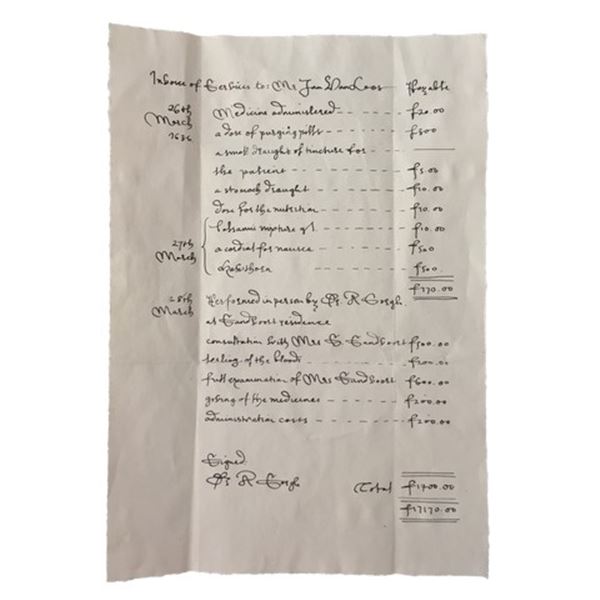 Invoice of Services to: Mr Jan Van Loos Payable
26th March 1686 Medicine administered f20.00
a dose of purging pills f500
a small draught of tincture for
the patient f5.00
a stomach draught f10.00
dose for the nutrition f10.00
balsamic mixture f10.00
27th March a cordial for nausea f500
f500
f770.00
28th March Performed in person by Dr. R
at Sandvoort residence
consultation with Mrs S Sandvoort f500.00
of the bloods f200.00
full examination of Mrs Sandvoort f600.00
giving of the medicines f200.00
administration costs f200.00
Signed
Dr R
Total f1700.00
f17170.00